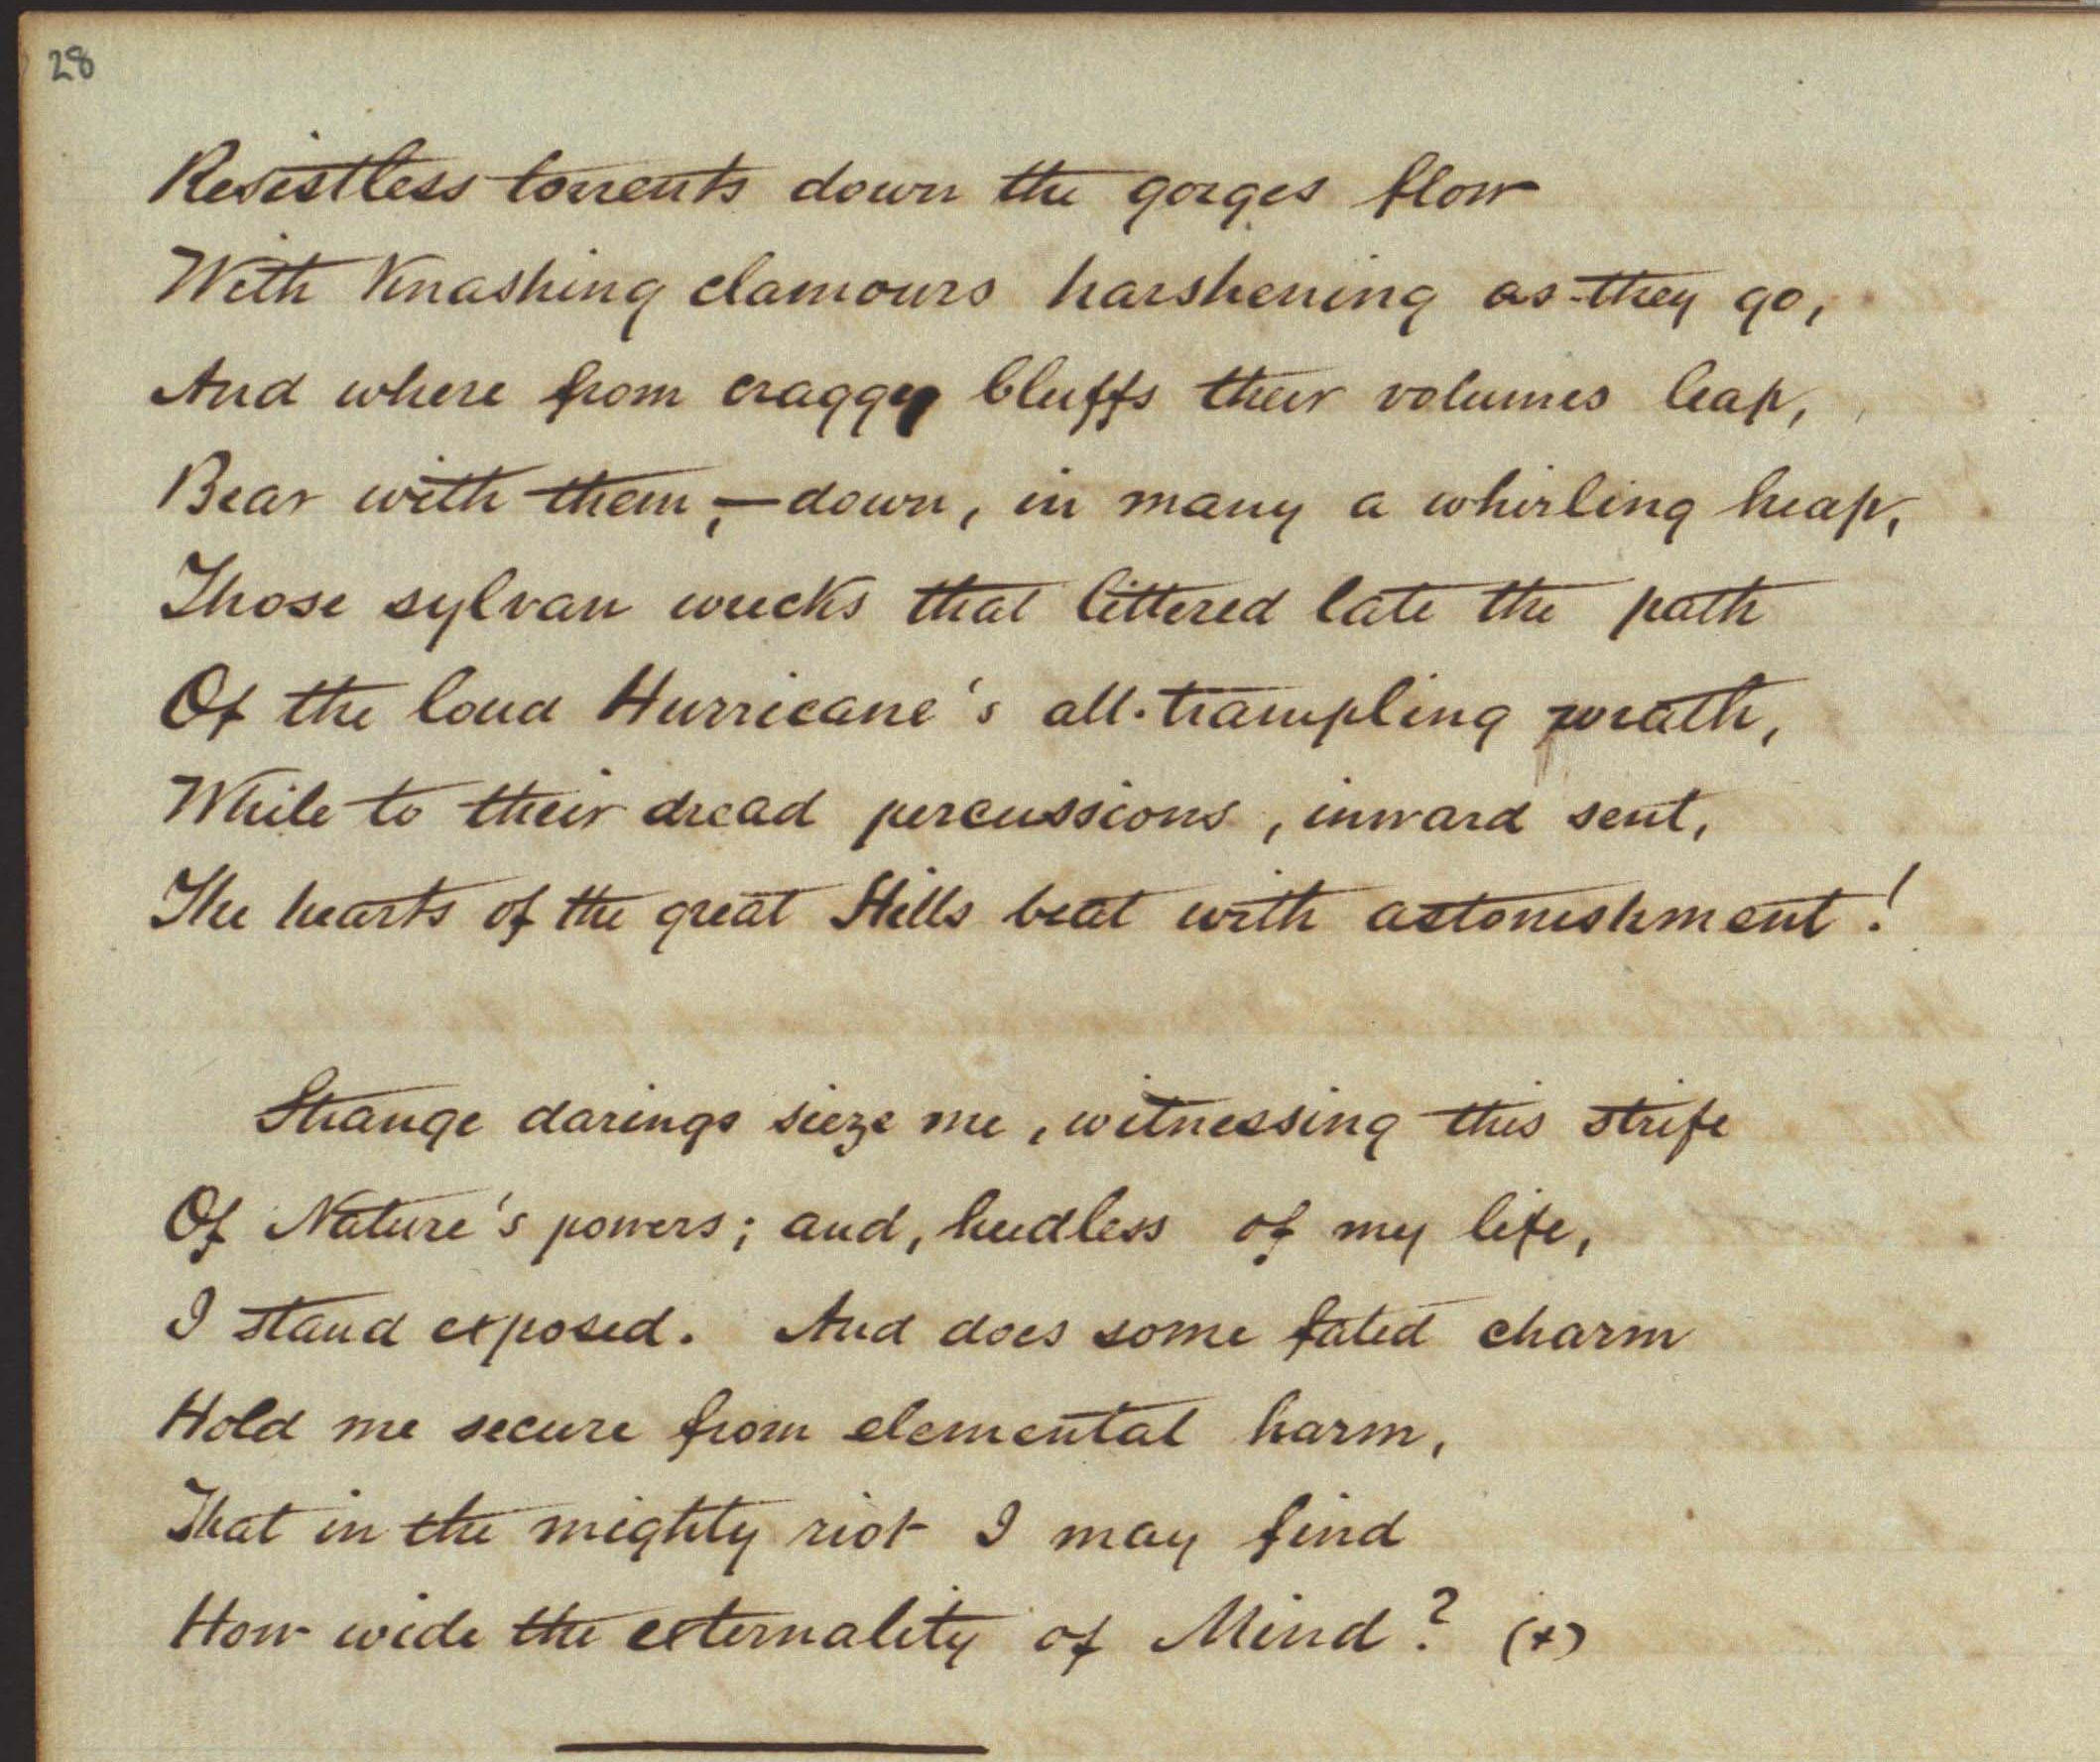 28
Resistless torrents down the gorges flow
With Knashing clamours harshening as they go,
And where from craggy bluffs their volumes leap,
Bear with them,—down, in many a whirling heap,
Those sylvan wrecks that littered late the path
Of the loud Hurricane's all-trampling wrath,
While to their dread percussions, inward sent,
The hearts of the great Hills beat with astonishment!
Strange darings sieze me, witnessing this strife
Of Nature's powers; and, heedless of my life,
I stand exposed. And does some fated charm
Hold me secure from elemental harm,
That in the mighty riot I may find
How wide the externality of Mind? (x)